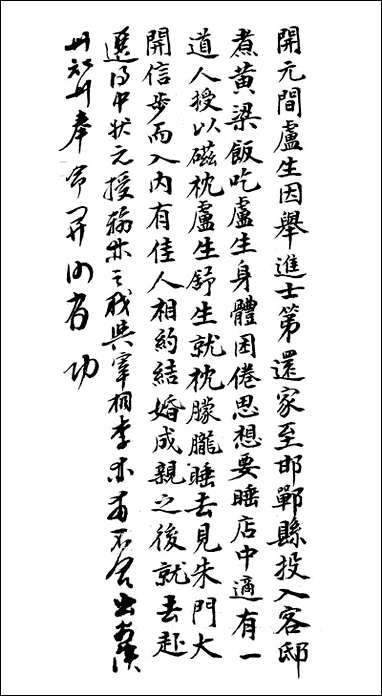 開元間盧生因舉進士第還家至邯鄲縣投入客邸
煮黃粱飯吃盧生身體困倦思想要睡店中適有一
道人授以磁枕盧生舒生就枕朦朧睡去見朱門大
開信步而入內有佳人相約結婚成親之後就去赴
選得中狀元授翰林之職與宰相李林甫不合出
州知州奉命開河有功